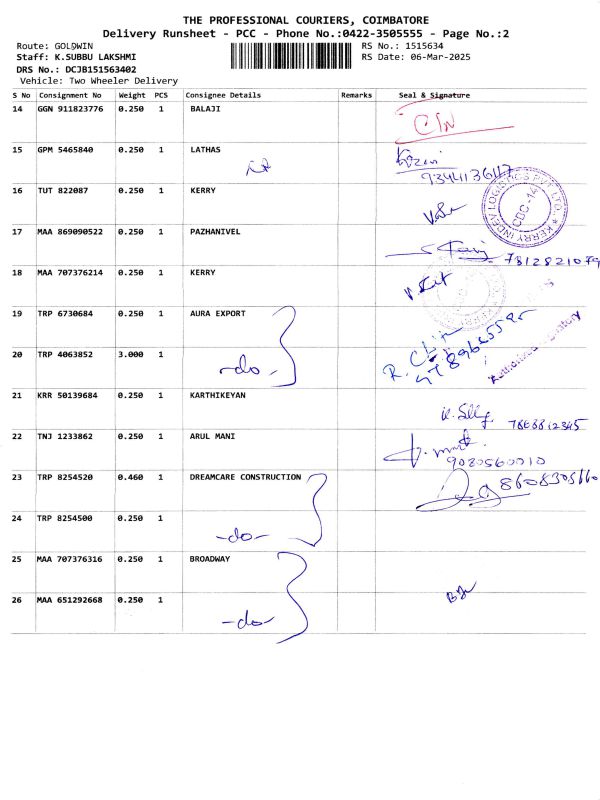 THE PROFESSIONAL COURIERS, COIMBATORE
Delivery Runsheet - PCC - Phone No.:0422-3505555 - Page No.:2
Route: GOLDWIN RS No.: 1515634
Staff: K.SUBBU LAKSHMI RS Date: 06-Mar-2025
DRS No.: DCJB151563402
Vehicle: Two Wheeler Delivery
S No Consignment No Weight PCS Consignee Details Remarks Seal & Signature
14 GGN 911823776 0.250 1 BALAJI
15 GPM 5465840 0.250 1 LATHAS
16 TUT 822087 0.250 1 KERRY
KERRY INDEV LOGISTICS PVT LTD. CBC-14
17 MAA 869090522 0.250 1 PAZHANIVEL
7812821079
18 MAA 707376214 0.250 1 KERRY
19 TRP 6730684 0.250 1 AURA EXPORT
20 TRP 4063852 3.000 1 -do-
Authorised Signatory
21 KRR 50139684 0.250 1 KARTHIKEYAN
22 TNJ 1233862 0.250 1 ARUL MANI
9080560010
23 TRP 8254520 0.460 1 DREAMCARE CONSTRUCTION
24 TRP 8254500 0.250 1 -do-
25 MAA 707376316 0.250 1 BROADWAY
26 MAA 651292668 0.250 1 -do-